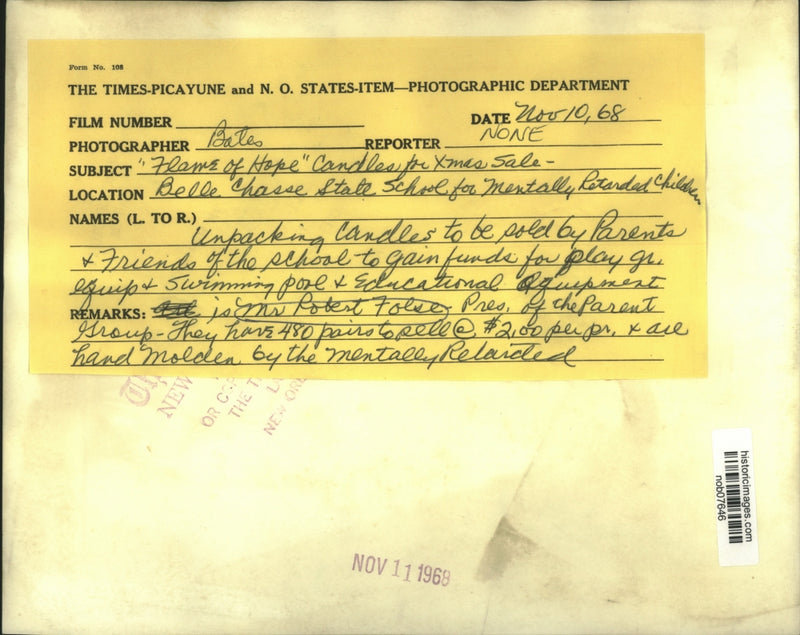 Form No. 108
THE TIMES-PICAYUNE and N. O. STATES-ITEM—PHOTOGRAPHIC DEPARTMENT
FILM NUMBER DATE Nov 10, 68
PHOTOGRAPHER Bates REPORTER NONE
SUBJECT "Flame of Hope" Candles for Xmas Sale -
LOCATION Belle Chasse State School for Mentally Retarded Children
NAMES (L. TO R.)
Unpacking Candles to be sold by Parents
& Friends of the school to gain funds for play gr.
equip & Swimming pool & Educational Equipment
REMARKS: is Mr Robert Folse, Pres. of the Parent
Group - They have 480 pairs to sell @ $2.00 per pr. & are
hand molden by the mentally Retarded
NEW
OR
THE T
NEW OR
NOV 11 1968
historicimages.com
nob07646